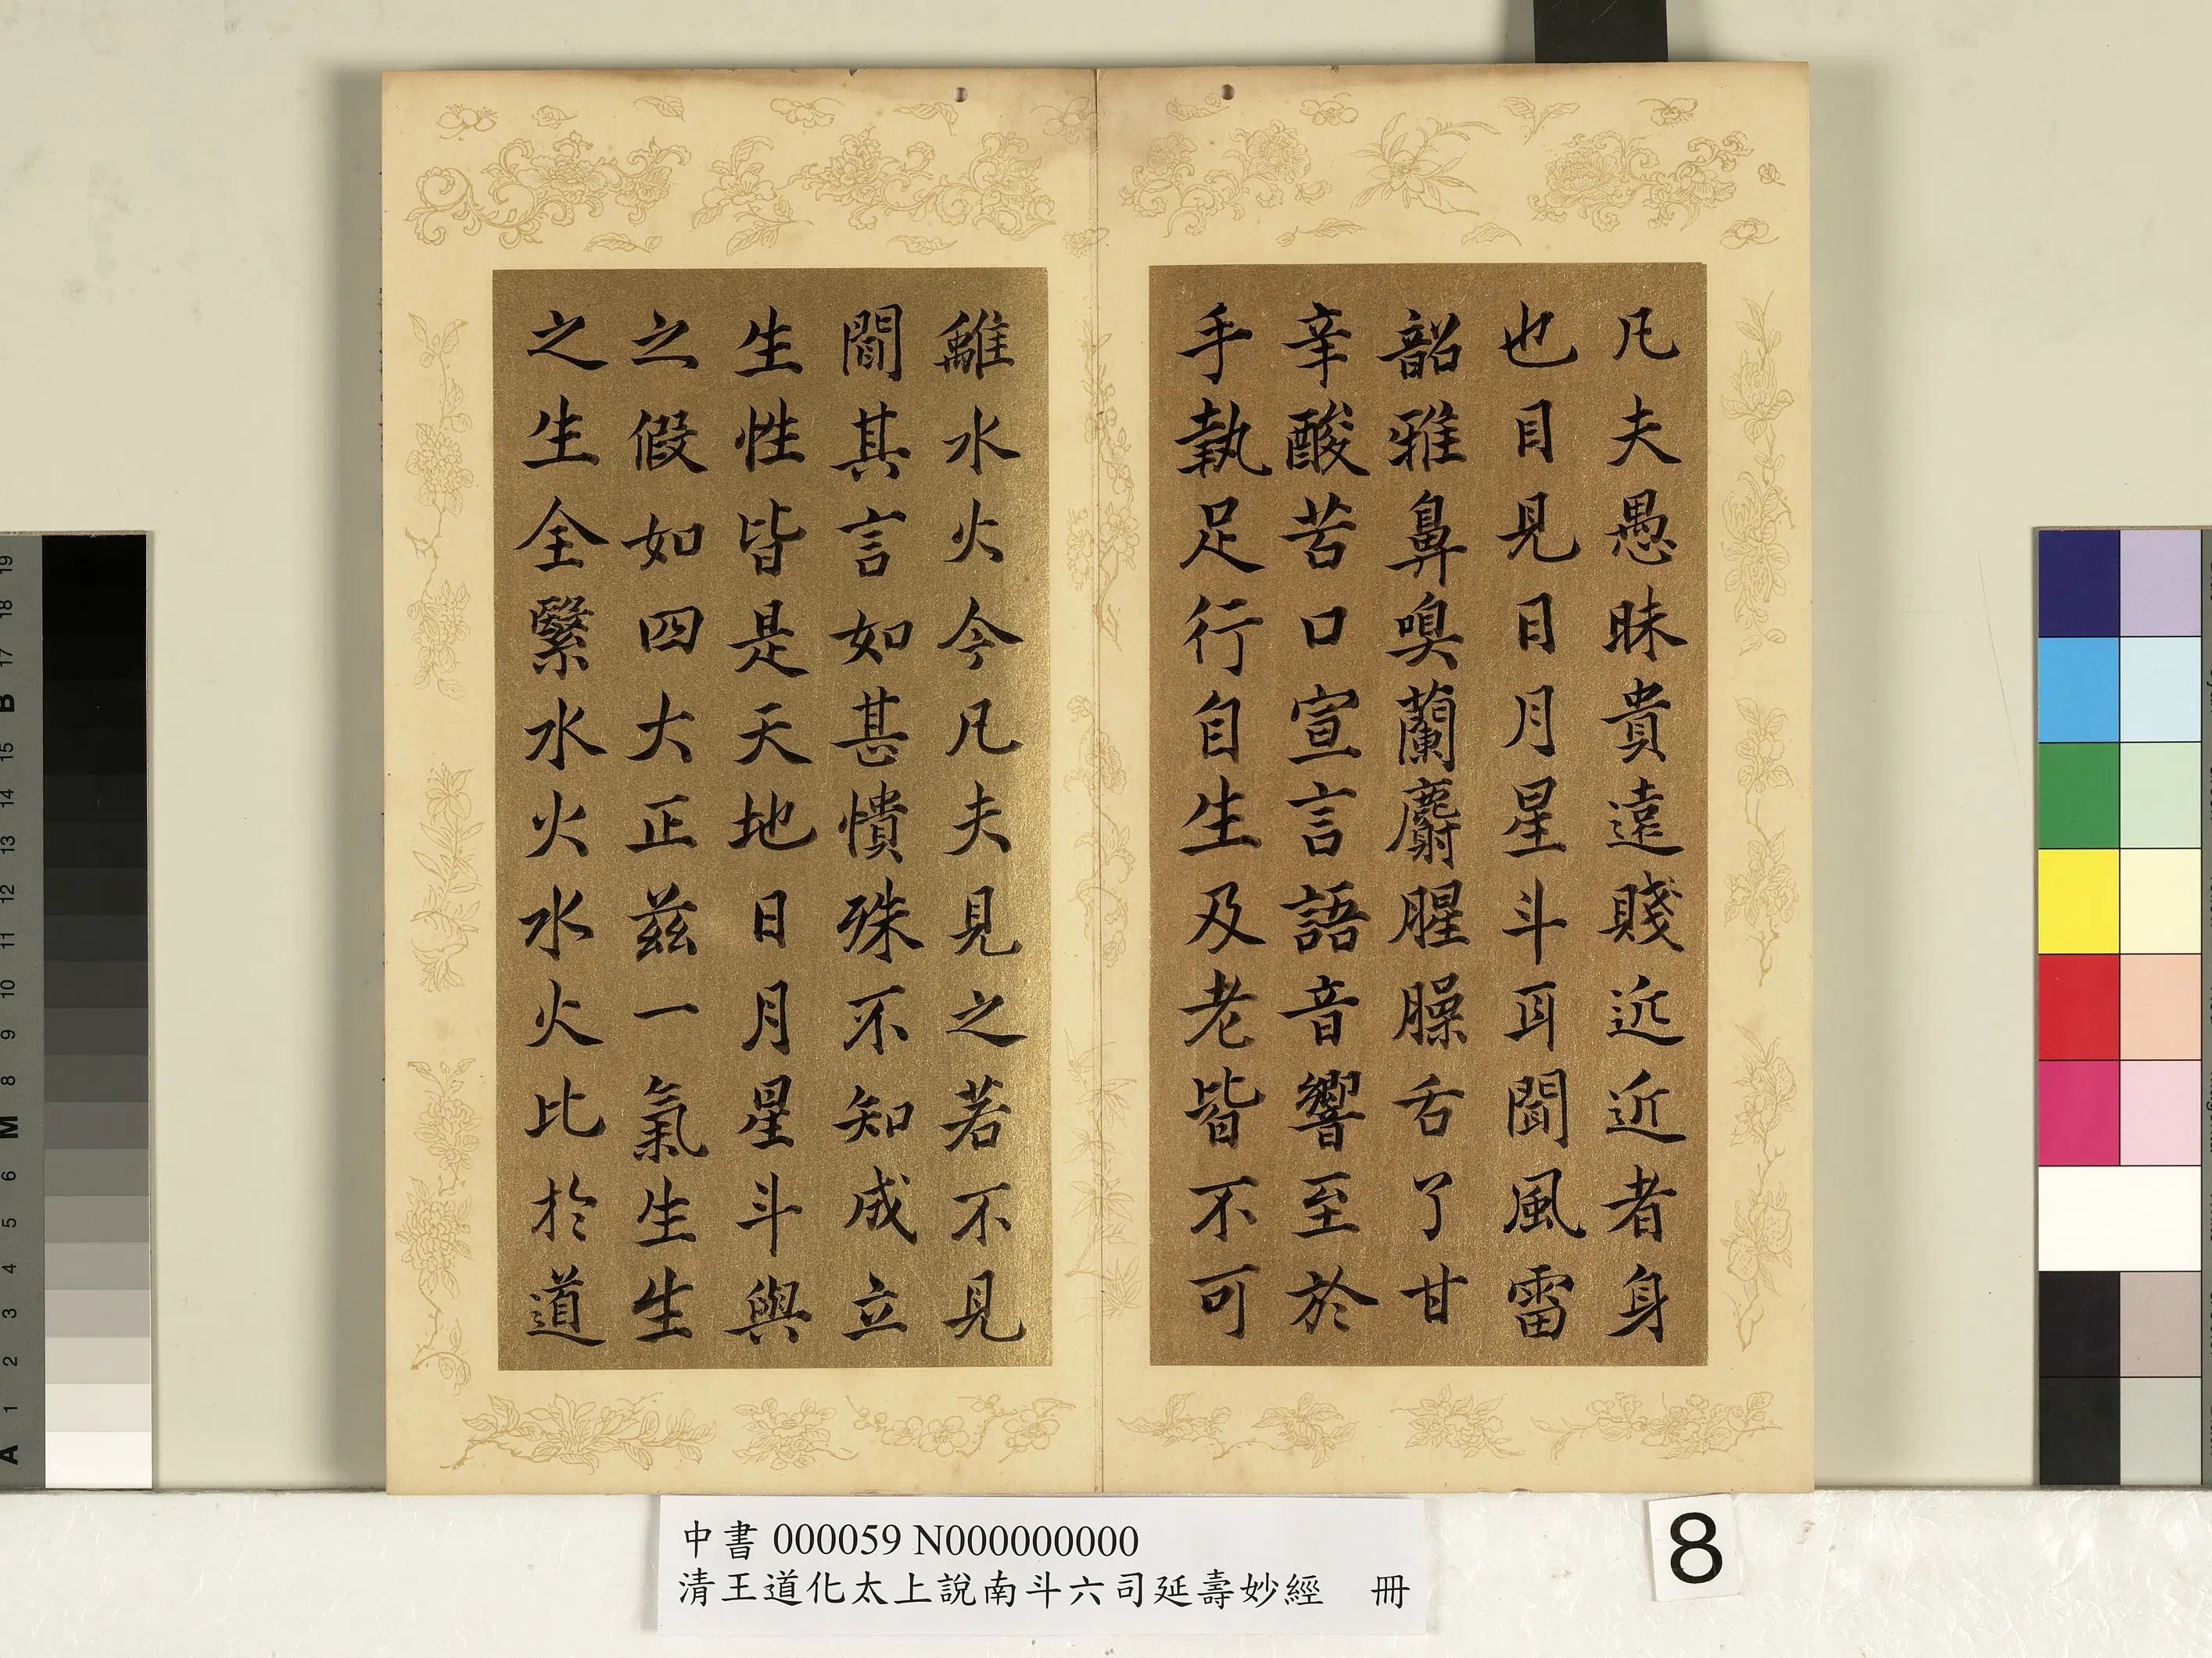 凡夫愚昧貴遠賤近近者身
也目見日月星斗耳聞風雷
韶雅鼻嗅蘭麝腥臊舌了甘
辛酸苦口宣言語音響至於
手執足行自生及老皆不可
離水火今凡夫見之若不見
聞其言如甚憒殊不知成立
生性皆是天地日月星斗與
之假如四大正茲一氣生生
之生全繄水火水火比於道
中書 000059 N000000000
清王道化太上說南斗六司延壽妙經 冊
8
19
18
17
B
15
14
13
12
11
10
9
8
M
6
5
4
3
2
1
A